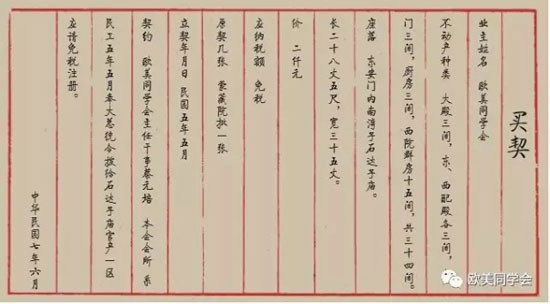 买契
业主姓名 欧美同学会
不动产种类 大殿三间,东、西配殿各三间,
门三间,厨房三间,西院群房十五间,共三十四间。
座落 东安门内南湾子石达子庙。
长二十八丈五尺,宽三十五丈。
价 二仟元
应纳税额 免税
原契几张 蒙藏院批一张
立契年月日 民国五年五月
契约 欧美同学会主任干事蔡元培 本会会所系
民工五年五月奉大总统令拨给石达子庙官产一区
应请免税注册。
中华民国七年六月
欧美同学会